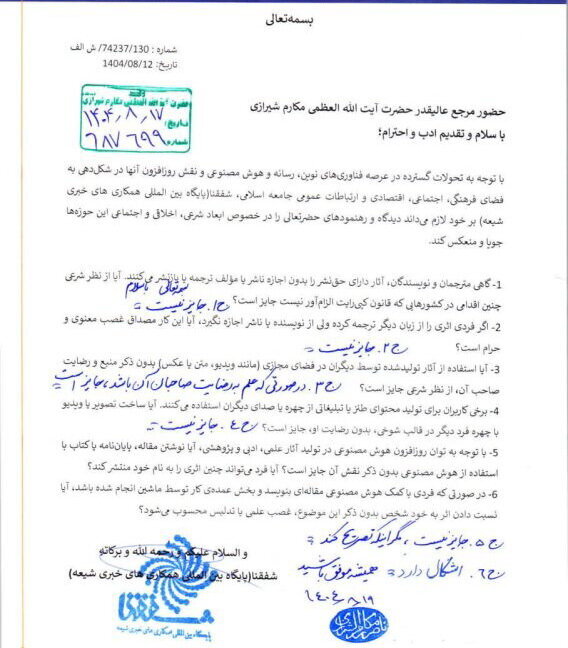 بسمه‌تعالی
شماره : 74237/130/ ش الف
تاریخ: 1404/08/12
حضرت آیت الله العظمی مکارم شیرازی
تاریخ: ۱۴۰۴٫۸٫۱۷
شماره ۶۸۷۶۹۹
حضور مرجع عالیقدر حضرت آیت الله العظمی مکارم شیرازی
با سلام و تقدیم ادب و احترام؛
با توجه به تحولات گسترده در عرصه فناوری‌های نوین، رسانه و هوش مصنوعی و نقش روزافزون آنها در شکل‌دهی به
فضای فرهنگی، اجتماعی، اقتصادی و ارتباطات عمومی جامعه اسلامی، شفقنا(پایگاه بین المللی همکاری های خبری
شیعه) بر خود لازم می‌داند دیدگاه و رهنمودهای حضرتعالی را در خصوص ابعاد شرعی، اخلاقی و اجتماعی این حوزه‌ها
جویا و منعکس کند.
1-گاهی مترجمان و نویسندگان، آثار دارای حق‌نشر را بدون اجازه ناشر یا مؤلف ترجمه یا بازنشر می‌کنند. آیا از نظر شرعی
بسمه‌تعالی باسلام
چنین اقدامی در کشورهایی که قانون کپی‌رایت الزام‌آور نیست جایز است؟ ج۱. جایز نیست
2- اگر فردی اثری را از زبان دیگر ترجمه کرده ولی از نویسنده یا ناشر اجازه نگیرد، آیا این کار مصداق غصب معنوی و
حرام است؟ ج۲. جایز نیست
3- آیا استفاده از آثار تولیدشده توسط دیگران در فضای مجازی (مانند ویدیو، متن یا عکس) بدون ذکر منبع و رضایت
صاحب آن، از نظر شرعی جایز است؟ ج۳. درصورتی که علم به رضایت صاحبان آن باشد، جایز است
4- برخی کاربران برای تولید محتوای طنز یا تبلیغاتی از چهره یا صدای دیگران استفاده می‌کنند. آیا ساخت تصویر یا ویدیو
با چهره فرد دیگر در قالب شوخی، بدون رضایت او، جایز است؟ ج۴. جایز نیست
5- با توجه به توان روزافزون هوش مصنوعی در تولید آثار علمی، ادبی و پژوهشی، آیا نوشتن مقاله، پایان‌نامه یا کتاب با
استفاده از هوش مصنوعی بدون ذکر نقش آن جایز است؟ آیا فرد می‌تواند چنین اثری را به نام خود منتشر کند؟
6- در صورتی که فردی با کمک هوش مصنوعی مقاله‌ای بنویسد و بخش عمده‌ی کار توسط ماشین انجام شده باشد، آیا
نسبت دادن اثر به خود شخص بدون ذکر این موضوع، غصب علمی یا تدلیس محسوب می‌شود؟
ج۵. جایز نیست، مگر اینکه تصریح کند
ج۶. اشکال دارد همیشه موفق باشید
۱۴۰۴٫۸٫۱۹
و السلام علیکم و رحمه الله و برکاته
شفقنا(پایگاه بین المللی همکاری های خبری شیعه)
شفقنا
پایگاه بین المللی همکاری های خبری شیعه